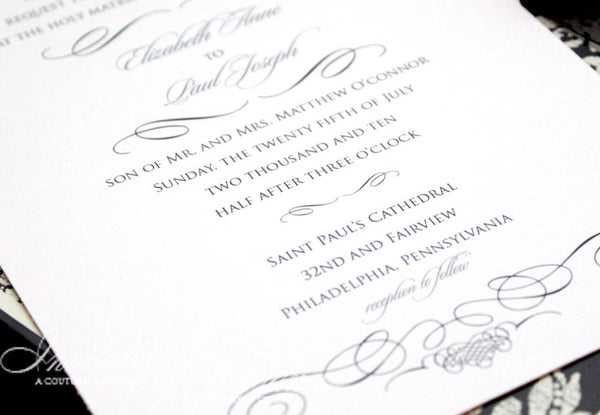 REQUEST
AT THE HOLY MATRI
Elizabeth Anne
TO
Paul Joseph
SON OF MR. AND MRS. MATTHEW O'CONNOR
SUNDAY, THE TWENTY FIFTH OF JULY
TWO THOUSAND AND TEN
HALF AFTER THREE O'CLOCK
SAINT PAUL'S CATHEDRAL
32ND AND FAIRVIEW
PHILADELPHIA, PENNSYLVANIA
reception to follow
A COUTURE